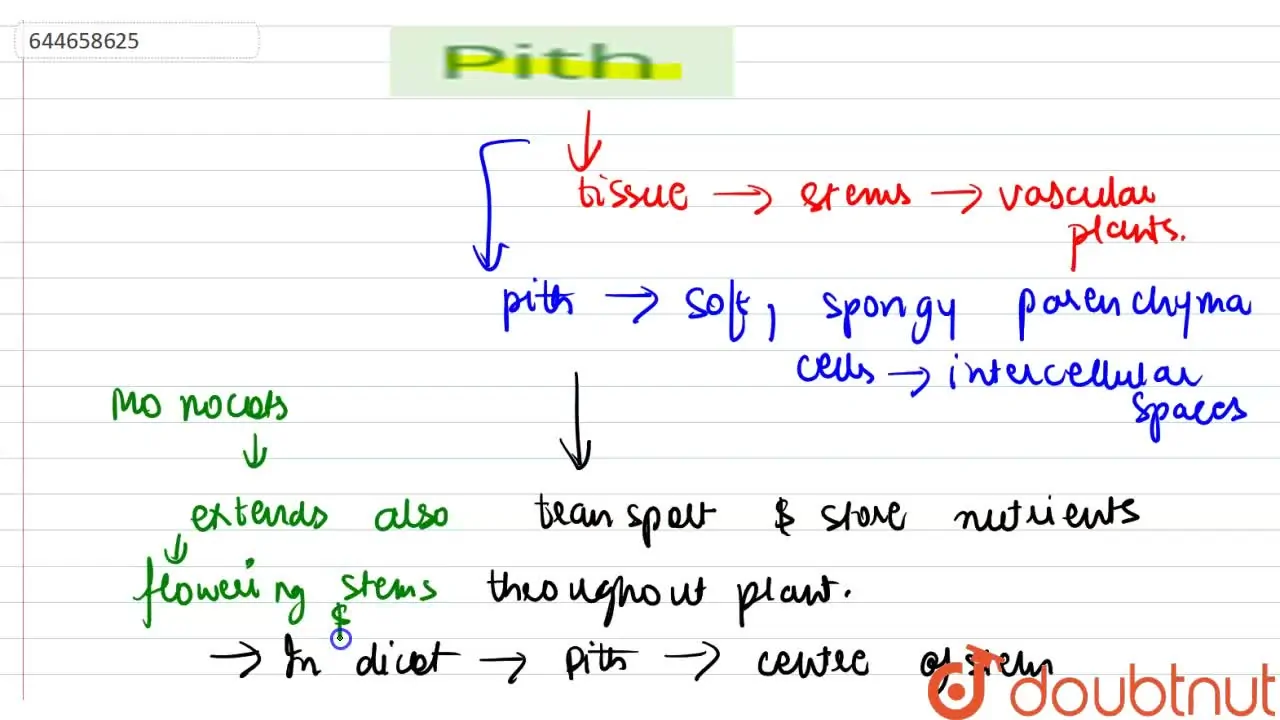 644658625
Pith
↓
tissue → stems → vascular
plants.
pith → soft, spongy parenchyma
cells → intercellular
spaces
Monocots
↓
extends also
transport & store nutrients
flowering stems
&
throughout plant.
→ In dicot → pith → centre of stem
doubtnut